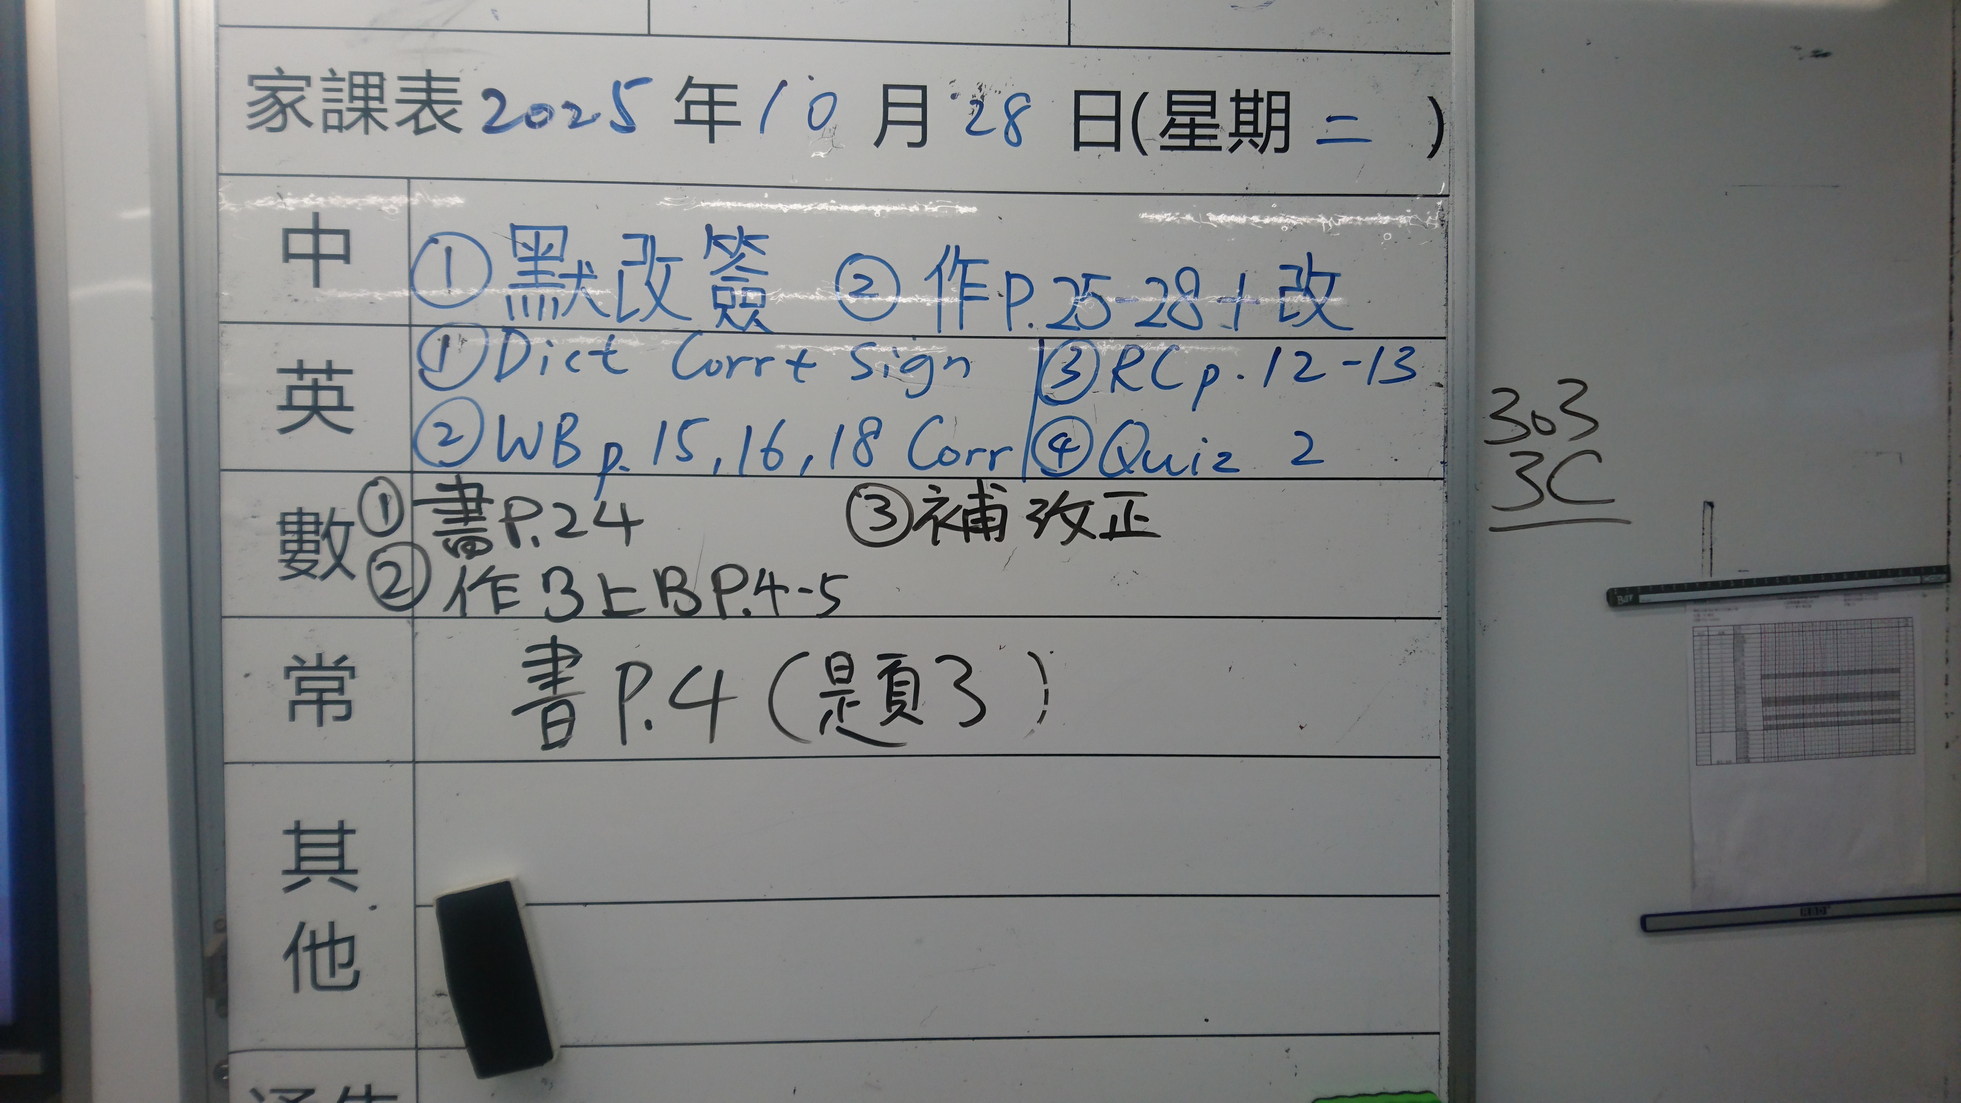 家課表 2025 年 10 月 28 日(星期 二 )
中 ①默改簽 ②作P.25-28+改
英 ①Dict Corr+ Sign ③RC p.12-13
②WB p.15,16,18 Corr ④Quiz 2
數 ①書P.24 ③補改正
②作3上B P.4-5
常 書P.4(題3)
其他
303
3C